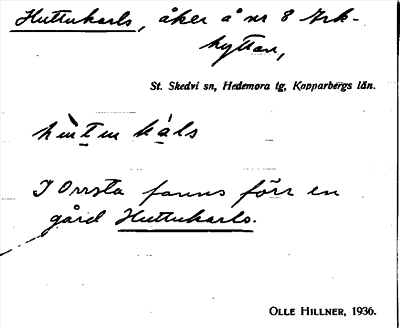 Huttukarls, åker å nr 8 Ark-
hyttan,
St. Skedvi sn, Hedemora tg, Kopparbergs län.
I Orrsta fanns förr en
gård Huttukarls.
OLLE HILLNER, 1936.